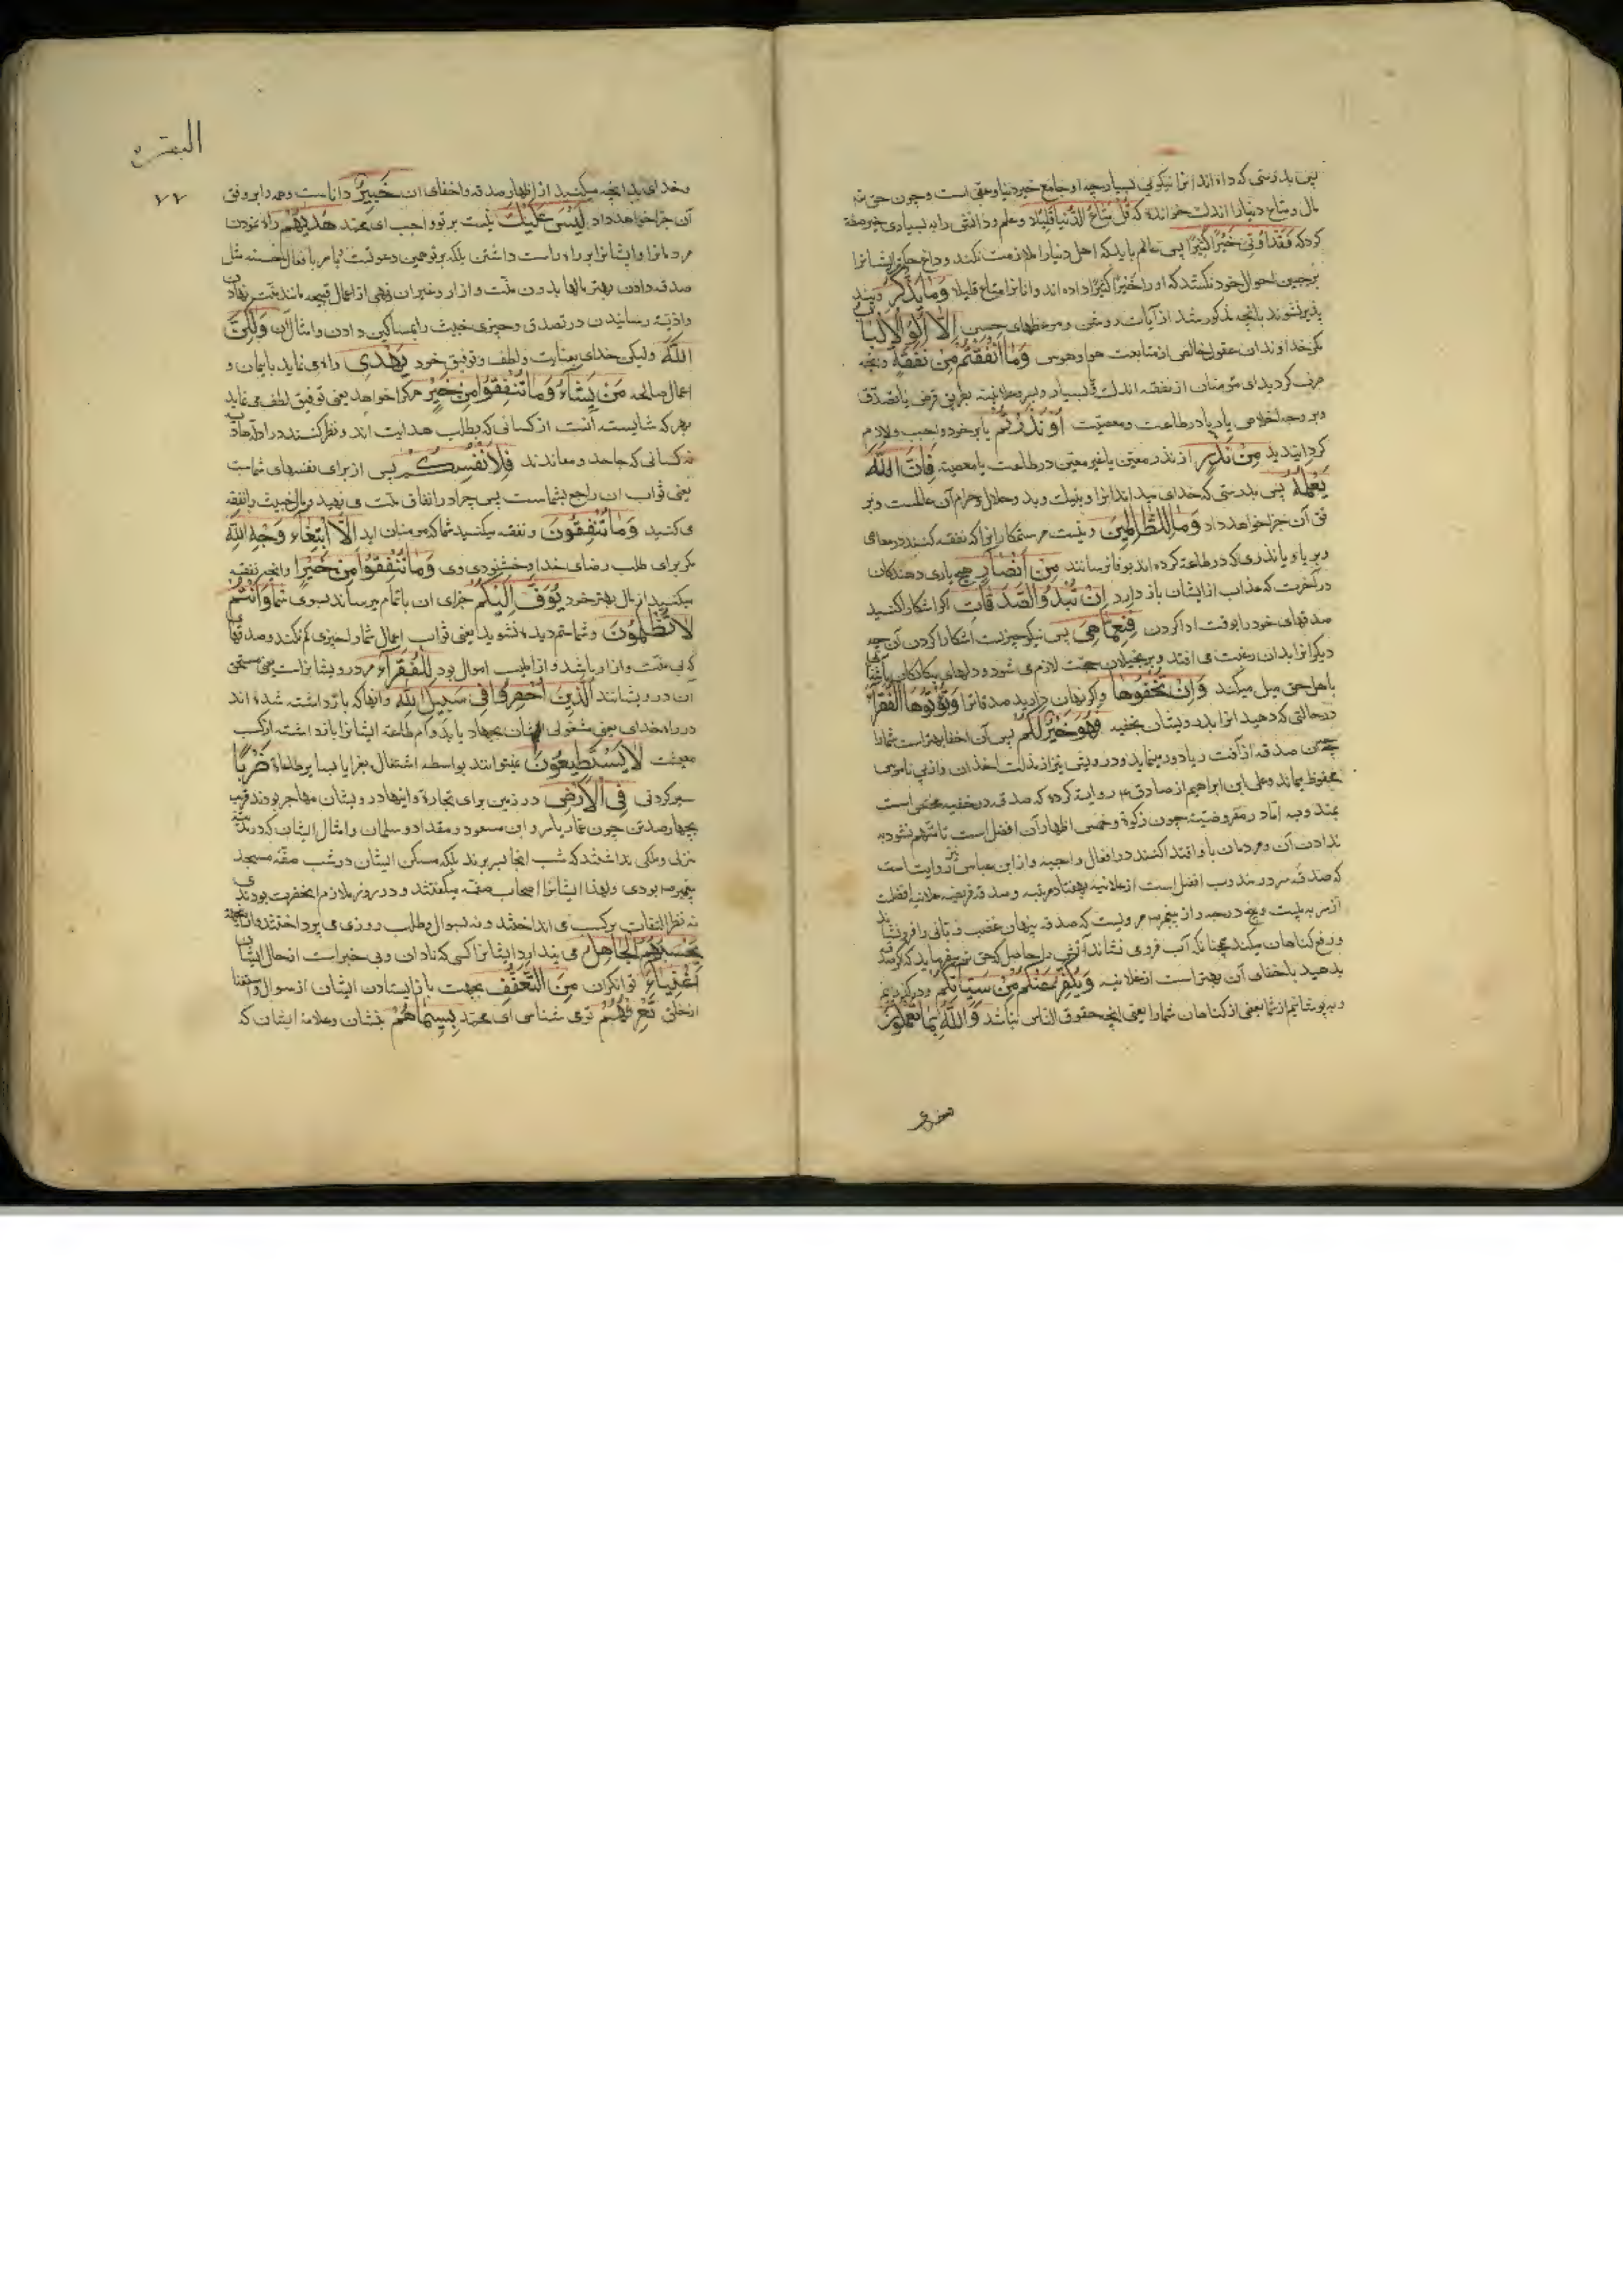 پس بدرستی که داده اند انرا نیکوئی بسیار چه او جامع خیر دنیا و عقبی است و چون حق تع
مال و متاع دنیا را اندک خوانده که قُلْ مَتَاعُ الدُّنْيَا قَلِيلٌ و علم و دانش را به بسیاری خیر صفة
کرد که فَقَدْ أُوتِيَ خَيْرًا كَثِيرًا پس عالم باید که اهل دنیا را ملازمت نکند و داغ ایشانرا
بر جبین احوال خود نکشد که او را خیرًا کثیرًا داده اند و انانرا متاع قلیلا وَمَا يَذَّكَّرُ و پند
پذیر نشوند بانچه مذکور شد از آیات روشن و موعظهای حسن إِلَّا أُولُو الْأَلْبَابِ
مکر خداوندان عقول خالص از متابعت هوا و هوس وَمَا أَنْفَقْتُمْ مِنْ نَفَقَةٍ و انچه
صرف کردید ای مؤمنان از نفقه اندک و بسیار و بسر و علانیه بطریق فرض یا تصدق
و بر وجه اخلاص یا ریا در طاعت و معصیت أَوْ نَذَرْتُمْ یا بر خود واجب و لازم
کردانیدید مِنْ نَذْرٍ از نذر معین یا غیر معین در طاعت یا معصیة فَإِنَّ اللَّهَ
يَعْلَمُهُ پس بدرستی که خدای میداند انرا و بنیک و بد و حلال و حرام آن عالمست و بر
فق آن جزا خواهد داد وَمَا لِلظَّالِمِينَ و نیست مر ستمکارانرا که نفقه کنند در معاصی
و بریا و یا نذری که در طاعة کرده اند بوفا نرسانند مِنْ أَنْصَارٍ هیچ یاری دهندکان
در آخرت که عذاب از ایشان باز دارد إِنْ تُبْدُوا الصَّدَقَاتِ اکر اشکارا کنید
صدقهای خود را بوقت ادا کردن فَنِعِمَّا هِيَ پس نیکو چیزیست اشکارا کردن آن چه
دیکرانرا بدان رغبت می افتد و بر بخیلان حجت لازم می شود و دلهای بیکانکان
باهل حق میل میکند وَإِنْ تُخْفُوهَا و اکر پنهان دارید صدقاترا وَتُؤْتُوهَا الْفُقَرَاءَ
در حالتی که دهید انرا بدرویشان بخفیه فَهُوَ خَيْرٌ لَكُمْ پس آن اخفا بهتر است شما را
صدقه از آفت ریا دور مینماید و درویش نیز از مذلت اخذ ان و از بی ناموسی
محفوظ میماند و علی ابن ابراهیم از صادق ع روایة کرده که صدقه در خفیه است
اما در مفروضیة چون زکوة و خمس اظهار آن افضل است تا متهم نشود به
ندادن آن و مردمان باو اقتدا کنند در افعال واجبه و از ابن عباس نیز روایت است
که صدقه سر در مندوب افضل است از علانیه بهفتاد مرتبه و صدقه فریضه علانیه افضلست
از سر به بیست و پنج درجه و از پیغمبر ص مرویست که صدقه پنهان غضب ربانی را فرو نشاند
و رفع کناهان میکند چنانکه آب فرو می نشاند آتش را حاصل که حق تع میفرماید که کر صدقه
بدهید باخفای آن بهتر است از علانیه وَيُكَفِّرُ عَنْكُمْ مِنْ سَيِّئَاتِكُمْ و درکذرانیم
و بپوشانیم از شما بعضی از کناهان شما را یعنی انچه حقوق الناس نباشد وَاللَّهُ بِمَا تَعْمَلُونَ
البقره
۷۷
و خدای بدانچه میکنید از اظهار صدقه و اخفای ان خَبِيرٌ داناست و همه را بر وفق
آن جزا خواهد داد لَيْسَ عَلَيْكَ نیست بر تو واجب ای محمد هُدَاهُمْ راه نمودن
مردمانرا و ایشانرا براه راست داشتن بلکه بر تو همین دعوتست و امر بافعال حسنه مثل
صدقه دادن بهتر مالها بدون منّت و ازار و غیر ان و نهی از اعمال قبیحه مانند منّت نهادن
و اذیّة رسانیدن در تصدق و چیزی خبیث را بمساکین دادن و امثال آن وَلَكِنَّ
اللَّهَ ولیکن خدای بعنایت و لطف و توفیق خود يَهْدِي راه می نماید بایمان و
اعمال صالحه مَنْ يَشَاءُ وَمَا تُنْفِقُوا مِنْ خَيْرٍ هر کرا خواهد یعنی توفیق لطف می نماید
بهر که شایسته آنست از کسانی که بطلب هدایت اند و نظر کنند در ادله
نه کسانی که جاحد و معاندند فَلِأَنْفُسِكُمْ پس از برای نفسهای شماست
یعنی ثواب ان راجع بشماست پس چرا در انفاق منّت می نهید و مال خبیث را نفقه
می کنید وَمَا تُنْفِقُونَ و نفقه میکنید شما که مومنان اید إِلَّا ابْتِغَاءَ وَجْهِ اللَّهِ
مکر برای طلب رضای خدا و خشنودی وی وَمَا تُنْفِقُوا مِنْ خَيْرٍ و انچه نفقه
میکنید از مال بهتر خود يُوَفَّ إِلَيْكُمْ جزای ان باتمام میرساند بسوی شما وَأَنْتُمْ
لَا تُظْلَمُونَ و شما ستم دیده نشوید یعنی ثواب اعمال شما را چیزی کم نکند و صدقهای
که بی منّت و ازار باشد و از اطیب اموال بود لِلْفُقَرَاءِ مر درویشانراست یعنی مستحق
ان درویشانند الَّذِينَ أُحْصِرُوا فِي سَبِيلِ اللَّهِ و آنها که بازداشته شده اند
در راه خدای یعنی مشغولی ایشان بجهاد یا بدوام طاعة ایشانرا بازداشته از کسب
معیشت لَا يَسْتَطِيعُونَ نمیتوانند بواسطه اشتغال بغزا یا بسایر طاعاة ضَرْبًا
سیر کردنی فِي الْأَرْضِ در زمین برای تجارة و اینها درویشان مهاجر بودند قریب
بچهارصد تن چون عمار یاسر و ابن مسعود و مقداد و سلمان و امثال ایشان که در مدینه
منزلی و ملکی نداشتند که شب انجا بسر برند بلکه مسکن ایشان در شب صفّه مسجد
پیغمبر ص بودی و لهذا ایشانرا اصحاب صفه میکفتند و در روز ملازم انحضرت بودندی
نه نظر التفات بر کسب می انداختند و نه بسوال و طلب روزی می پرداختند
يَحْسَبُهُمُ الْجَاهِلُ می پندارد ایشانرا کسی که نادان و بی خبر است از حال ایشان
أَغْنِيَاءَ توانکران مِنَ التَّعَفُّفِ بجهت باز ایستادن ایشان از سوال و استغنا
از خلق تَعْرِفُهُمْ توی شناسی ای محمد بِسِيمَاهُمْ بنشان و علامة ایشان که